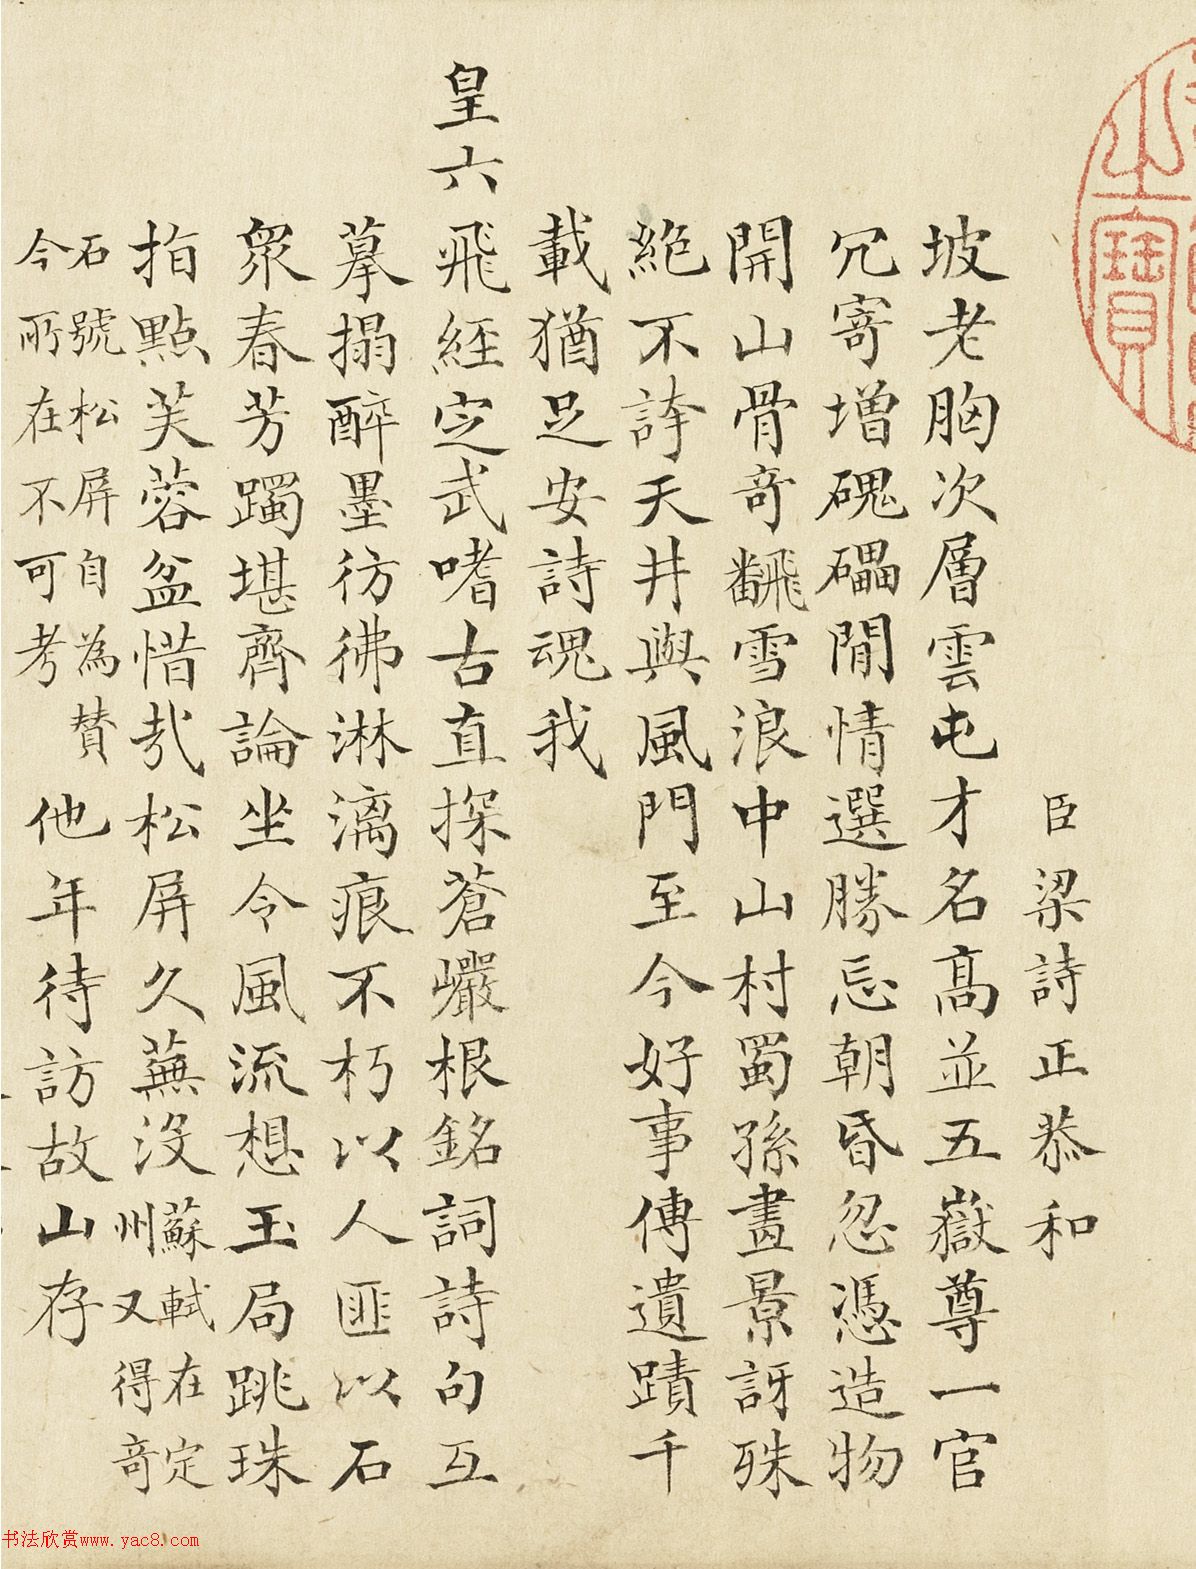 臣梁詩正恭和
坡老胸次層雲屯才名髙並五嶽尊一官
冗寄增磈礧閒情選勝忘朝昏忽憑造物
開山骨竒飜雪浪中山村蜀孫畫景訝殊
絶不誇天井與風門至今好事傳遺蹟千
載猶足安詩魂我
皇六飛經定武嗜古直探蒼巖根銘詞詩句互
摹搨醉墨彷彿淋漓痕不朽以人匪以石
衆春芳躅堪齊論坐令風流想玉局跳珠
指點芙蓉盆惜哉松屏久蕪沒
蘇軾在定
州又得竒
石號松屏自為賛
今所在不可考
他年待訪故山存
之寶
书法欣赏www.yac8.com